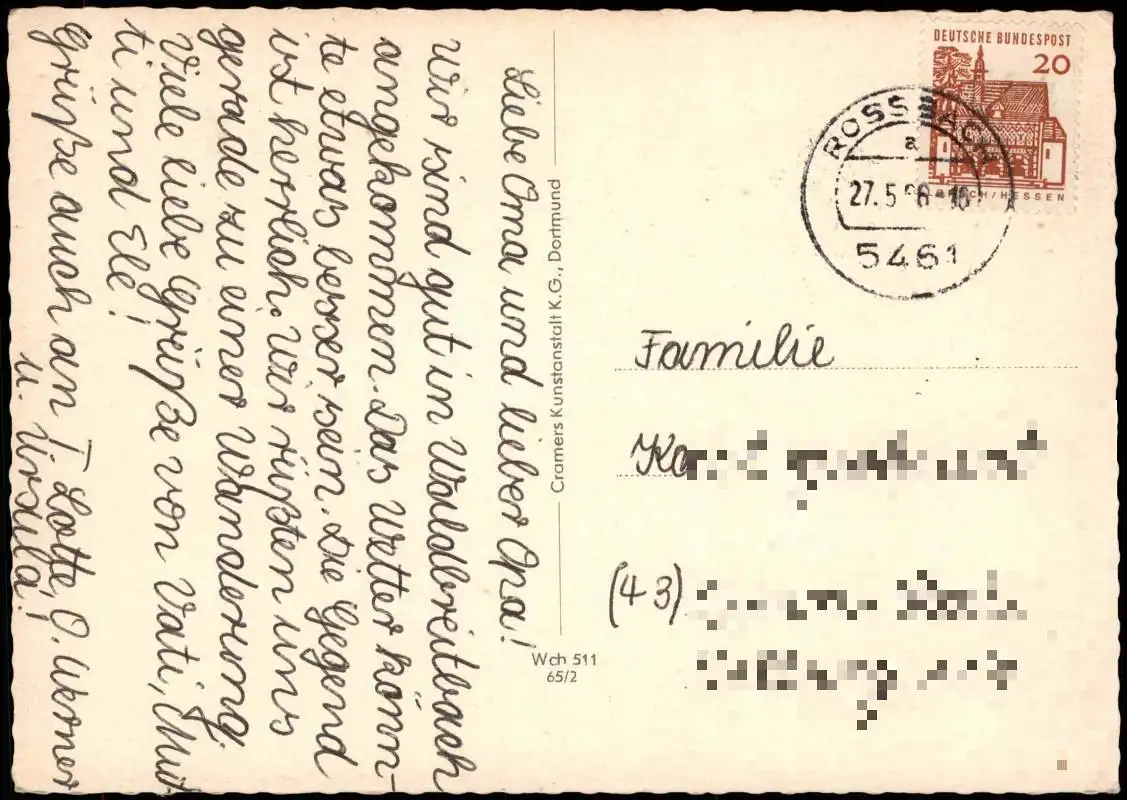 Liebe Oma und lieber Opa!
Wir sind gut in Waldbreitbach
angekommen. Das Wetter könn-
te etwas besser sein. Die Gegend
ist herrlich. Wir rüsten uns
gerade zu einer Wanderung.
Viele liebe Grüße von Vati, Mut-
ti und Ele!
Grüße auch an T. Lotte, O. Werner
u. Ursula!
Cramers Kunstanstalt K.G., Dortmund
Wch 511
65/2
DEUTSCHE BUNDESPOST
20
/HESSEN
ROSSBACH
a
27.5
5461
Familie
(43)